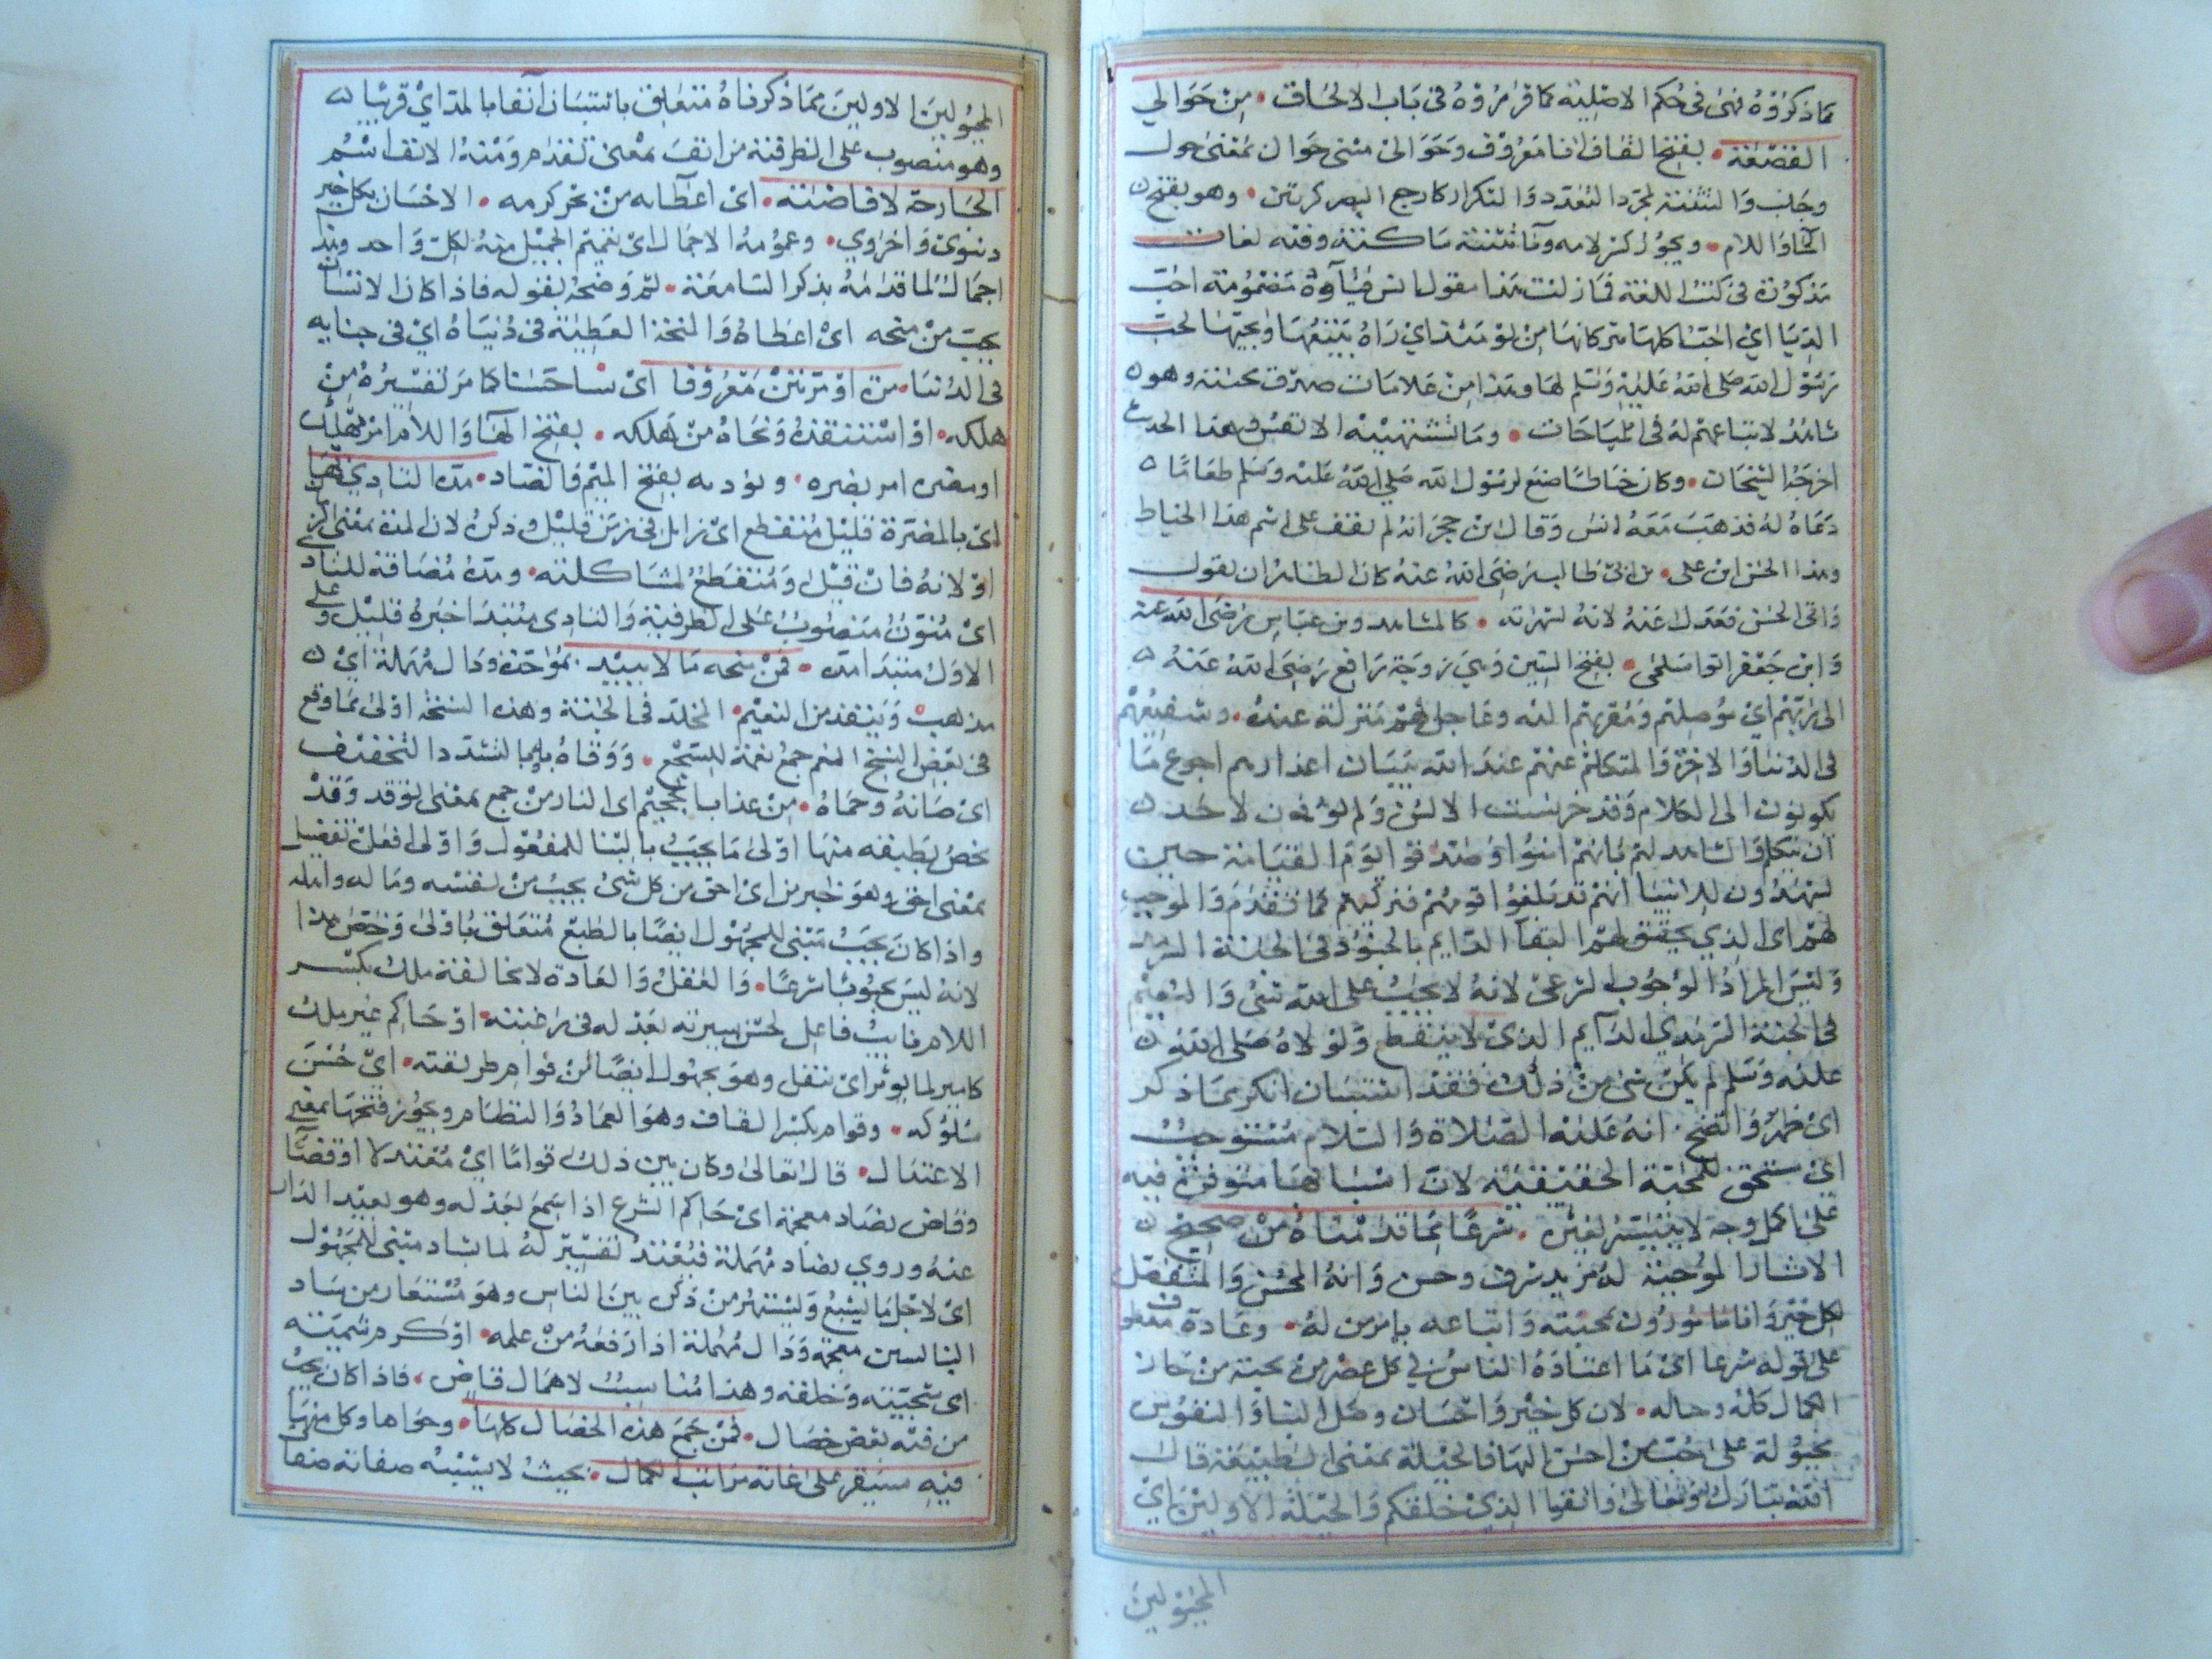 كما ذكروه فهي في حكم الاصلية كما قرروه في باب الالحاق من حوالي
القصعة بفتح القاف اناء معروف وحوالي مثنى حوال بمعنى حول
وجانب والتثنية لمجرد التعدد والتكرار كارجع البصر كرتين وهو بفتح
الحاء واللام ويجوز كسر لامه وتثنية ساكنة وفيه لغات
مذكورة في كتب اللغة فما زلت هذا مقول انس مضمومة احب
الدبا اي احبتها كلها من يومئذ اي رآه يتتبعها ويحبها لحب
رسول الله صلى الله عليه وسلم لها وهذا من علامات صدق محبته وهو
شاهد لاتباعهم له في المباحات وما تشتهيه الانفس وهذا الحديث
اخرجه الشيخان وكان خياطا صنع لرسول الله صلى الله عليه وسلم طعاما
دعاه له فذهب معه انس وقال ابن حجر انه لم يقف على اسم هذا الخياط
وهذا الحسن ابن على بن ابي طالب رضى الله عنه كان الظاهر ان يقول
واتى الحسن فعدل عنه لانه لشهرته كالمشاهد وبن عباس رضى الله عنه
وابن جعفر اتوا سلمى بفتح السين وهي زوجة رافع رضى الله عنه
الى ربهم اي موصلهم ومقربهم اليه وعاجل لهم منزلة عنده وشفيعهم
في الدنيا والاخرة والمتكلم عنهم عند الله ببيان اعذارهم احوج ما
يكونون الى الكلام وقد خرست الالسن ولم يؤذن لاحد
ان يتكلم والشاهد لهم بانهم امنوا وصدقوا يوم القيامة حين
يشهدون للانبيا انهم قد بلغوا قومهم فنزكيهم كما تقدم والموجب
لهم اي الذي يحقق لهم البقا الدايم بالخلود في الجنة السرمد
وليس المراد الوجوب الشرعي لانه لا يجب على الله شئ والنعيم
في الجنة السرمدي الدآيم الذي لا ينقطع ولولاه صلى الله
عليه وسلم لم يكن شئ من ذلك فقد استبان لكم مما ذكر
اي ظهر واتضح انه عليه الصلاة والسلام مستوجب
اي مستحق للمحبة الحقيقية لان اسبابها متوفرة فيه
على اكمل وجه لا يتيسر لغيره شرعا بما قدمناه من صحيح
الاثار الموجبة له مزيد شرف وحسن وانه المحسن والمتفضل
بكل خير وانا مامورون بمحبته واتباعه بامر من له وعادة معطوف
على قوله شرعا اي ما اعتاده الناس في كل عصر من محبة من حاز
الكمال كله وحاله لان كل خير واحسان وصل الينا والنفوس
مجبولة على حب من احسن اليها فالجبلة بمعنى الطبيعة قال
الله تبارك وتعالى واتقوا الذي خلقكم والجبلة الاولين اي
المجبولين
المجبولين الاولين مما ذكرناه متعلق باستبان آنفا بالمد اي قريبا
وهو منصوب على الظرفية من انف بمعنى تقدم ومنه الانف اسم
الجارحة لافاضته اي اعطآيه من بحر كرمه الاحسان بكل خير
دنيوي واخروي وعمومه الاجمال اي تعميم الجميل منه لكل واحد وهذا
اجمال لما قدمه بذكر السامعة ثم وضحه بقوله فاذا كان الانسان
يحب من منحه اي اعطاه والمنحة العطية في دنياه اي في حياته
في الدنيا مرة او مرتين معروفا اي شيا حسنا كما مر تفسيره من
هلكه او استنقذه ونجاه من هلكه بفتح الهاء واللام امر مهلك
او مضرة امر يضره ويؤذيه بفتح الميم والضاد مدة التاذي بها
اي بالمضرة قليل منقطع اي زايل في زمن قليل وذكره لان المدة بمعنى زمن
او لانه فان قيل ومنقطع لمشاكلته ومدة مضافة للتاذ
اي منون منصوب على الظرفية والتاذي مبتدا خبره قليل وعلى
الاول مبتدا مدة فمن منحه ما لا يبيد بموحدة ودال مهملة اي
يذهب وينفد من النعيم المخلد في الجنة وهذه النسخة اولى مما وقع
في بعض النسخ النعم جمع نعمة للسجع ووقاه بالتشديد والتخفيف
اي صانه وحماه من عذاب الجحيم اي النار من جحم بمعنى توقد وقد
يخص بطبقة منها اولى ما يحب بالبنا للمفعول واولى افعل تفضيل
بمعنى احق وهو خبر من اي احق من كل شئ يحب من نفسه وماله واهله
واذا كان يحب مبني للمجهول ايضا بالطبع متعلق باولى وخص هذا
لانه ليس محبوبا شرعا والعقل والعادة لا تخالفه ملك بكسر
اللام نايب فاعل لحسن سيرته بعدله في رعيته او حاكم غير ملك
كامير لما يوثر اي ينقل وهو مجهول ايضا من قوام طريقته اي حسن
سلوكه وقوام بكسر القاف وهو العماد والنظام ويجوز فتحها بمعنى
الاعتدال قال تعالى وكان بين ذلك قواما اي معتدلا او قضا
وقاض بضاد معجمة اي حاكم الشرع اذا سمع بعدله وهو بعيد الدار
عنه وروي بصاد مهملة فبعيد تفسير له لما يشاد مبني للمجهول
اي لاجل ما يشيع ويشتهر من ذكره بين الناس وهو مستعار من شاد
البنا بشين معجمة ودال مهملة اذا رفعه من علمه او كرم شيمته
اي سجيته وخلقه وهذا مناسب لاهمال قاص فاذا كان يحب
من فيه بعض خصال فمن جمع هذه الخصال كلها وحواها وكل منها
فيه مستقر على غاية مراتب الكمال بحيث لا يشبه صفاته صفا